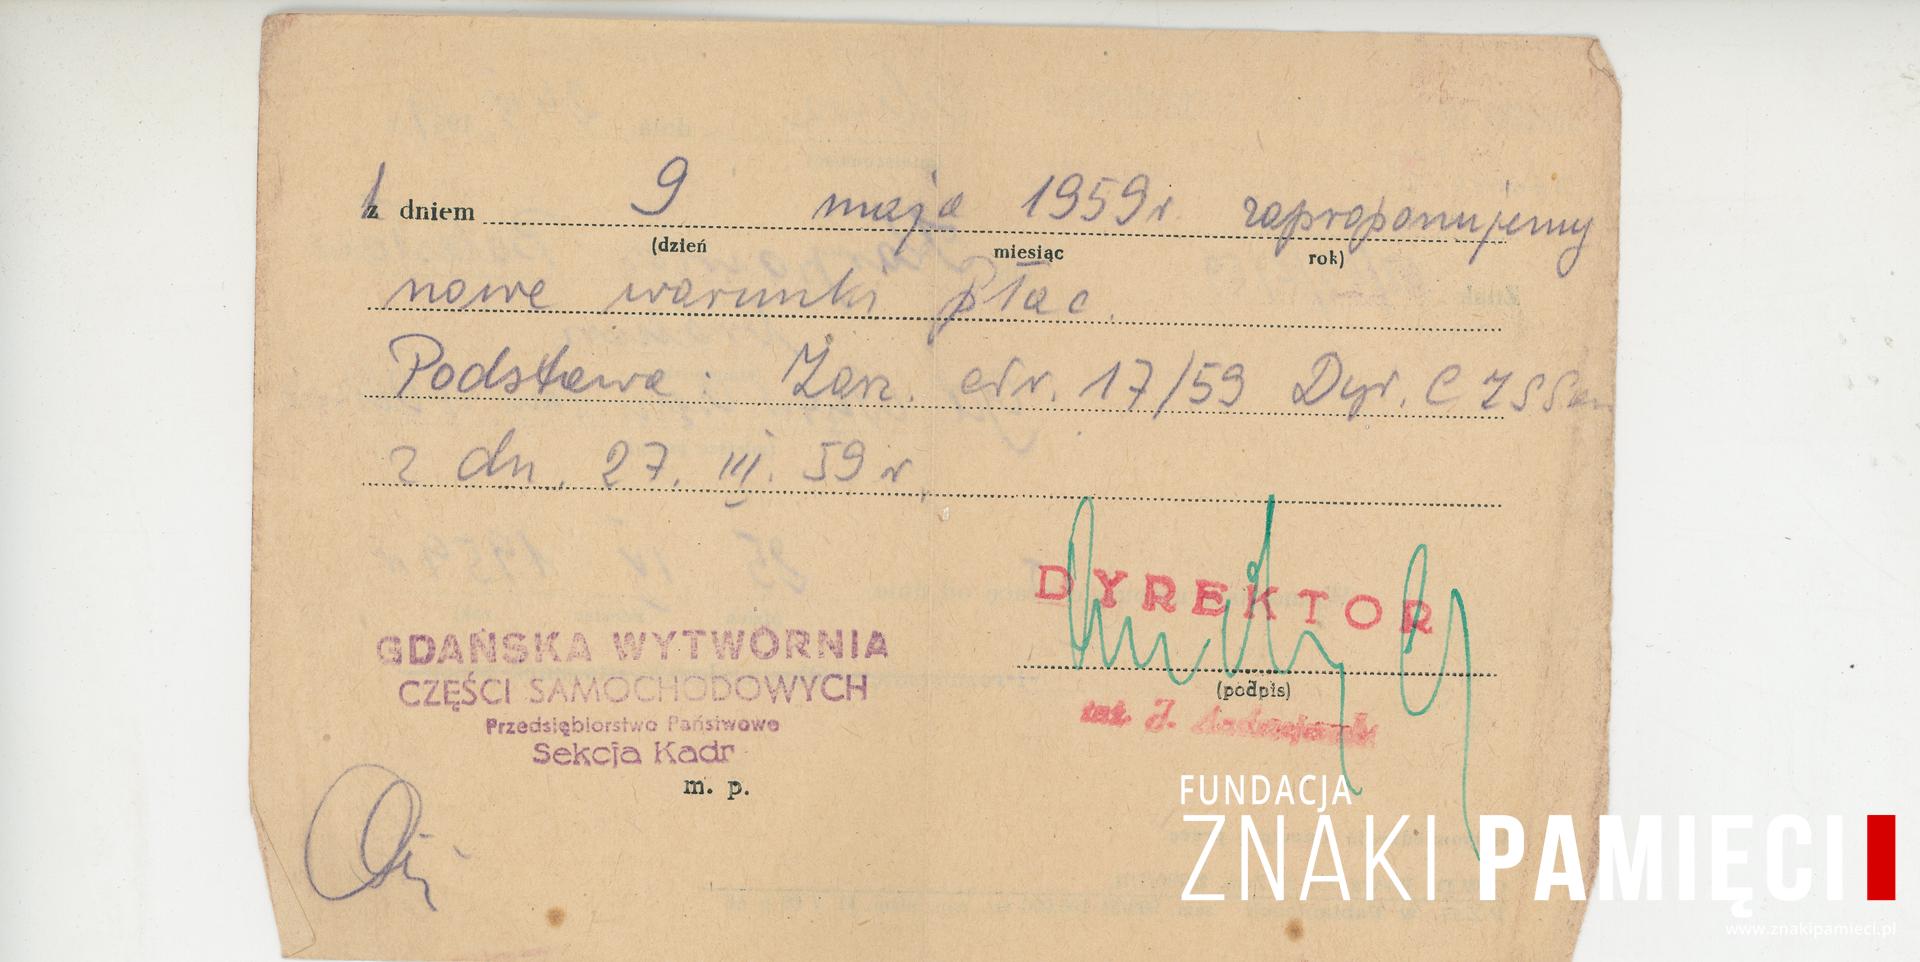 z dniem 9 maja 1959 r. zaproponujemy
(dzień miesiąc rok)
nowe warunki płac.
Podstawa: Zarz. nr. 17/59 Dyr. C Z S Sam
z dn. 27. III. 59 r.
DYREKTOR
(podpis)
inż. J.
GDAŃSKA WYTWÓRNIA
CZĘŚCI SAMOCHODOWYCH
Przedsiębiorstwo Państwowe
Sekcja Kadr
m. p.
FUNDACJA
ZNAKI PAMIĘCI
www.znakipamieci.pl